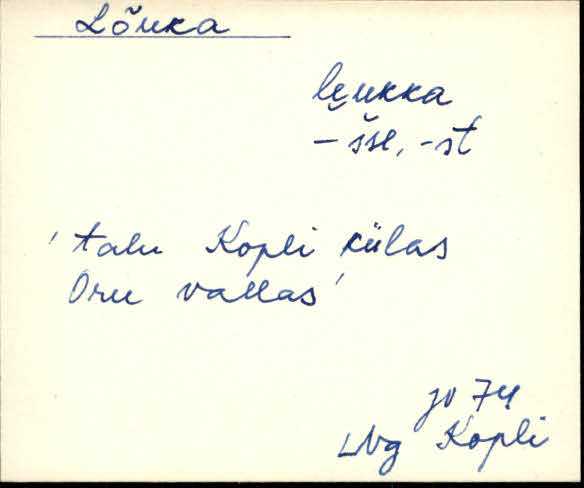 Lõuka
le̮ukka
- šše, -st
'talu Kopli külas
Oru vallas'
JV 74
Lüg Kopli